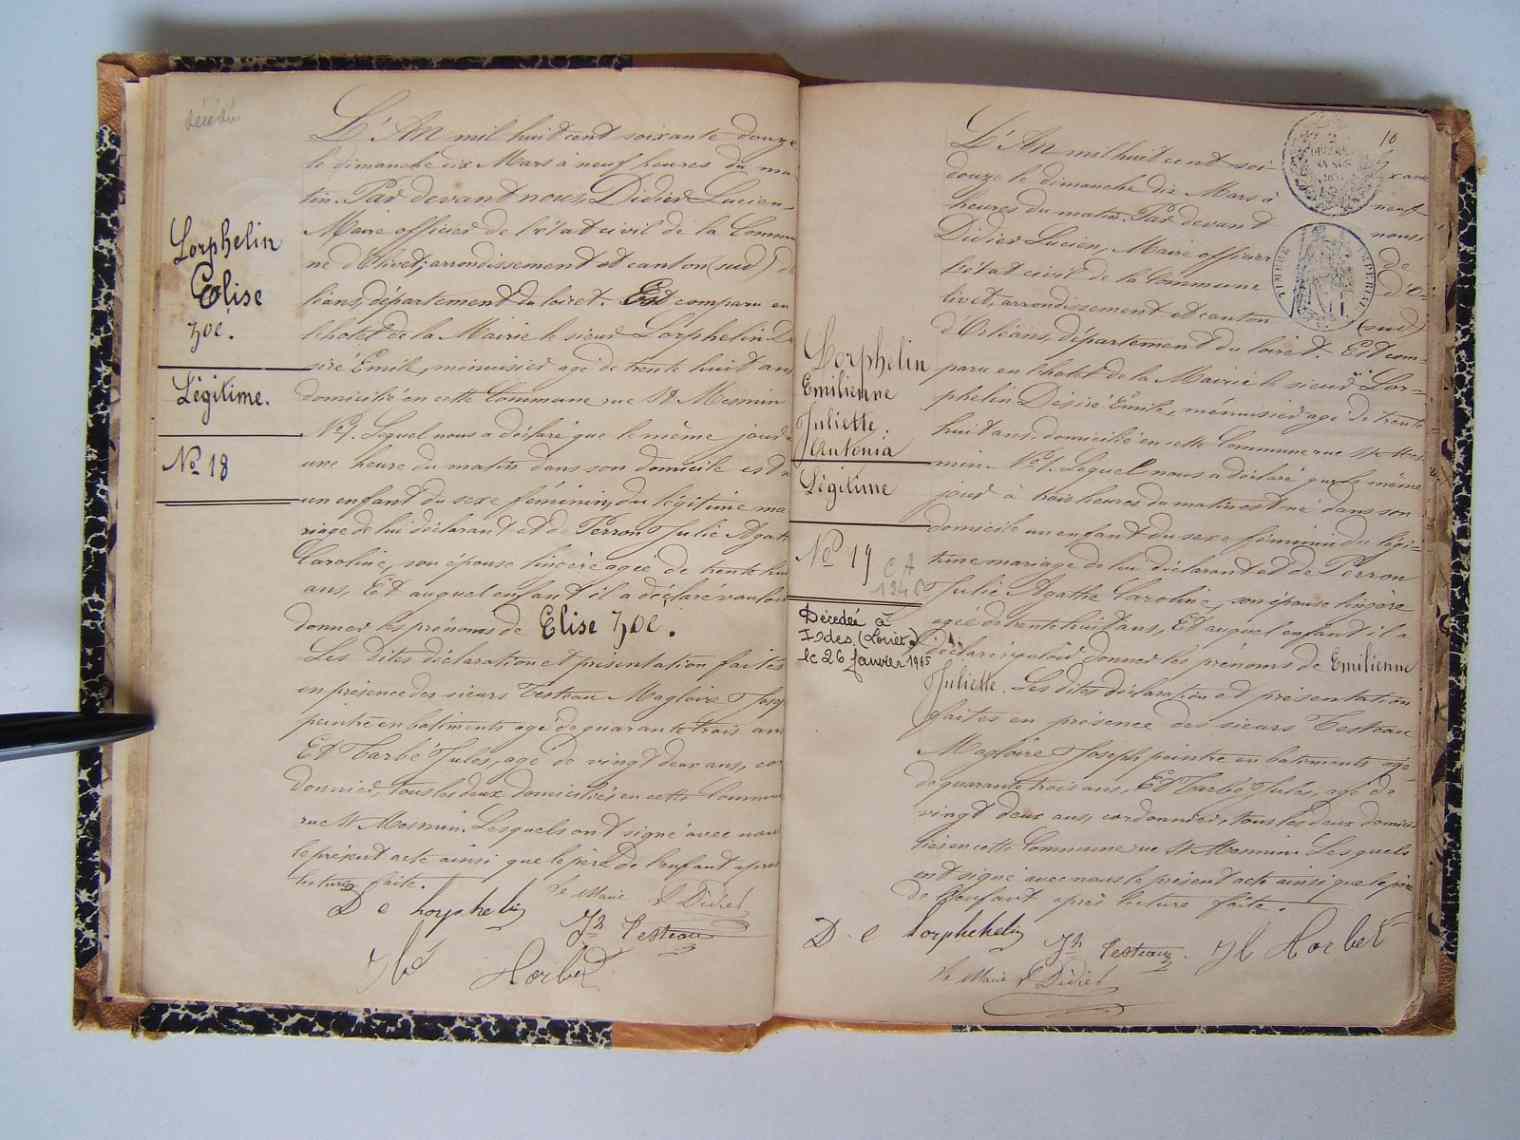 décédé
Lorphelin
Elise
Zoé.
Légitime.
No 18
L'An mil huit cent soixante douze
le dimanche dix Mars à neuf heures du ma
tin. Par devant nous, Didier Lucien
Maire officier de l'état civil de la Commu
ne d'Olivet, arrondissement et canton (sud) d'
léans, département du loiret. Est comparu en
l'hôtel de la Mairie le sieur Lorphelin D
siré Emile, menuisier agé de trente huit ans
domicilié en cette Commune rue St Mesmin
No 1. Lequel nous a déclaré que le même jour à
une heure du matin dans son domicile est né
un enfant du sexe féminin, du légitime ma
riage de lui déclarant et de Perron Julie Agath
Caroline, son épouse sincère agée de trente hui
ans, Et auquel enfant il a déclaré vouloir
donner les prénoms de Elise Zoé.
Les dites déclaration et présentation faites
en présence des sieurs Testeau Magloire Josep
peintre en batiments agé de quarante trois ans
Et Harbé Jules, agé de vingt deux ans, cor
donnier, tous les deux domiciliés en cette Commun
rue St Mesmin. Lesquels ont signé avec nous
le présent acte ainsi que le père de l'enfant après
lecture faite.
Le Maire L Didier
D e Lorphelin
Jh Testeau
10
Lorphelin
Emilienne
Juliette.
Antonia
Légitime
No 19
Décédée à
Ides (Loiret)
le 26 janvier 1945
L'An mil huit cent soi xante
douze le dimanche dix Mars à neuf
heures du matin. Par devant nous,
Didier Lucien, Maire officier de
l'état civil de la Commune d'O
livet, arrondissement et canton (sud)
d'Orléans, département du loiret. Est com-
paru en l'hôtel de la Mairie le sieur Lor-
phelin Désiré Emile, ménuisier agé de trente
huit ans, domicilié en cette Commune rue St Mes
min No 1. Lequel nous a déclaré que le même
jour à trois heures du matin est né dans son
domicile un enfant du sexe féminin du légi-
time mariage de lui déclarant et de Perron
Julie Agathe Caroline, son épouse sincère
agée de trente huit ans, Et auquel enfant il a
déclaré vouloir donner les prénoms de Emilienne
Juliette. Les dites déclaration et présentation
faites en présence des sieurs Testeau
Magloire Joseph, peintre en batiments agé
de quarante trois ans, Et Harbé Jules, agé de
vingt deux ans, cordonnier, tous les deux domici
liés en cette Commune rue St Mesmin. Lesquels
ont signé avec nous le présent acte ainsi que le père
de l'enfant après lecture faite.
D e Lorphelin
Jh Testeau
Le Maire L Didier